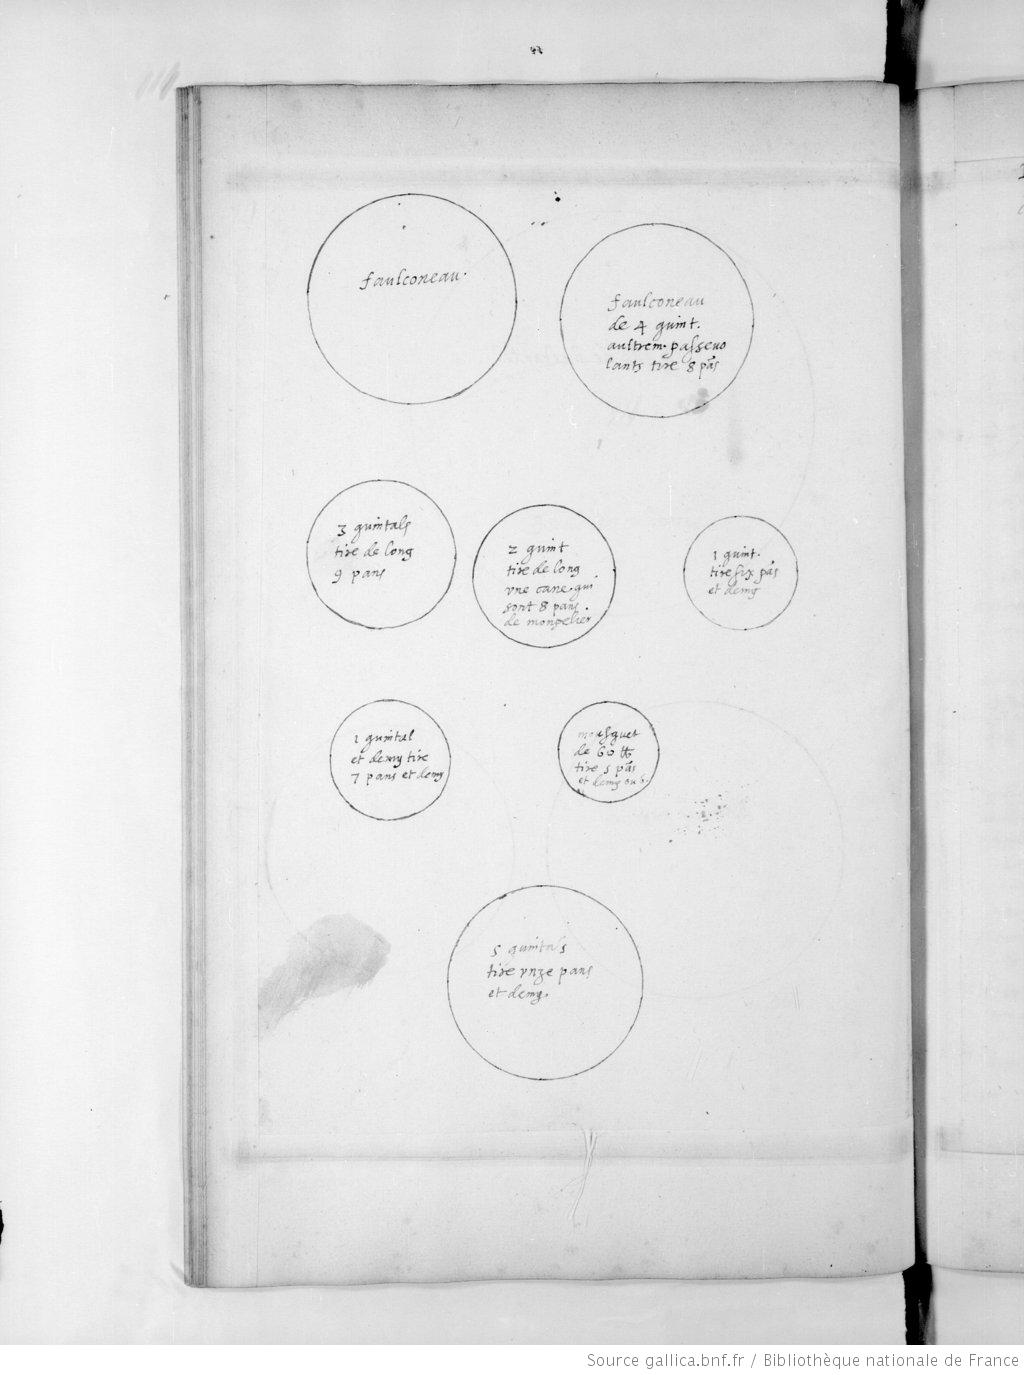 faulconeau.
faulconeau
de 4 quint.
aultrem. passeuo
lants tire 8 pās
3 quintals
tire de long
9 pans
2 quint
tire de long
vne cane. qui
sont 8 pans.
de monpelier
1 quint.
tire six pās
et demy
1 quintal
et demy tire
7 pans et demy
mousquet
de 60 ℔
tire 5 pās
et demy ou 6.
5 quintals
tire vnze pans
et demy.
Source gallica.bnf.fr / Bibliothèque nationale de France